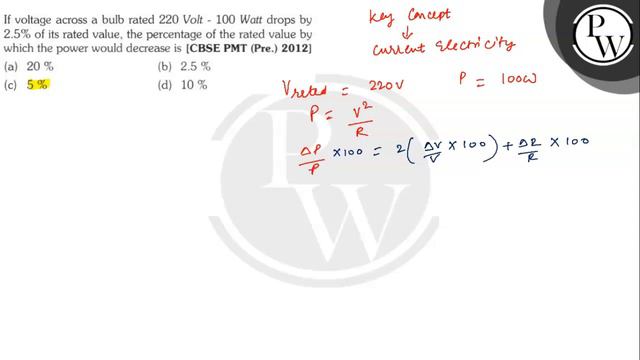 If voltage across a bulb rated 220 Volt - 100 Watt drops by
2.5% of its rated value, the percentage of the rated value by
which the power would decrease is [CBSE PMT (Pre.) 2012]
(a) 20 % (b) 2.5 %
(c) 5 % (d) 10 %
Key Concept
↓
Current Electricity
V rated = 220V P = 100W
P = V²/R
ΔP/P × 100 = 2 (ΔV/V × 100) + ΔR/R × 100
PW
PW